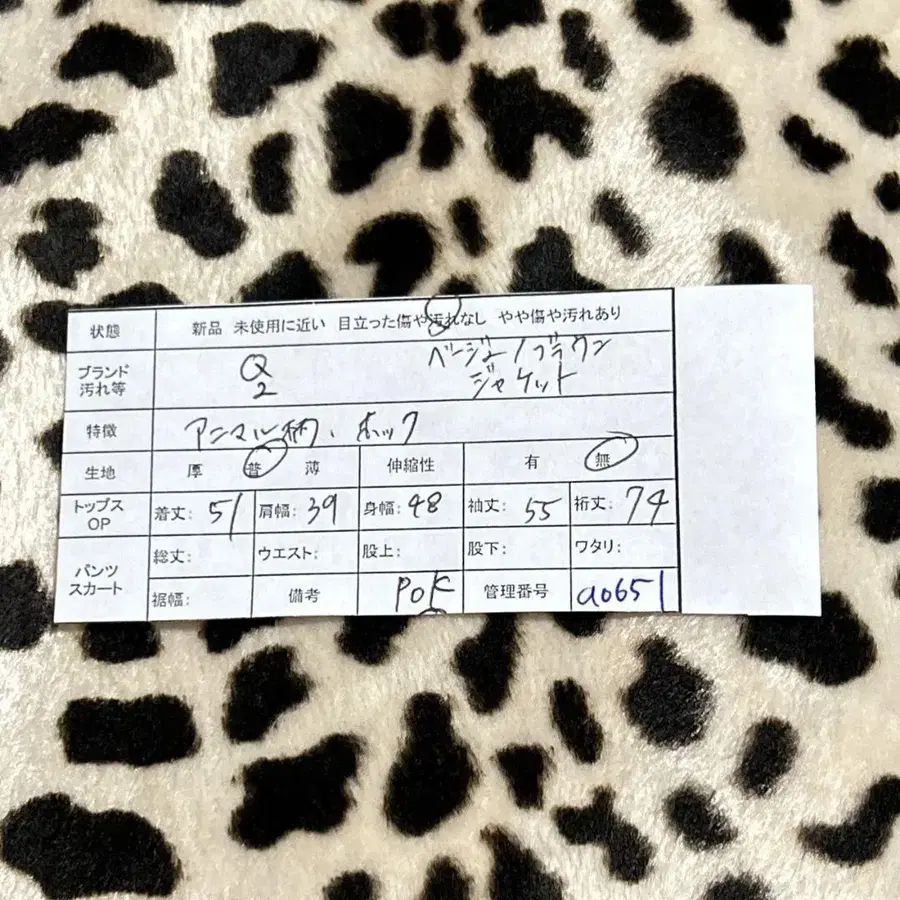 状態 新品 未使用に近い 目立った傷や汚れなし やや傷や汚れあり
ブランド 汚れ等 Q 2 ベージュ/ブラウン ジャケット
特徴 アニマル柄、ホック
生地 厚 普 薄 伸縮性 有 無
トップス OP 着丈: 51 肩幅: 39 身幅: 48 袖丈: 55 裄丈: 74
パンツ スカート 総丈: ウエスト: 股上: 股下: ワタリ:
裾幅: 備考 POK 管理番号 a0651